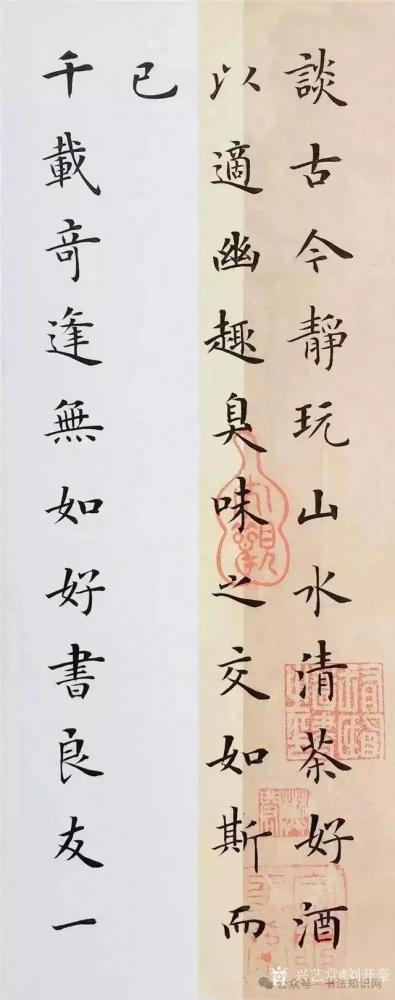 談古今靜玩山水清茶好酒
以適幽趣臭味之交如斯而
已
千載奇逢無如好書良友一
兴艺堂@刘开豪
公众号 · 书法知识网